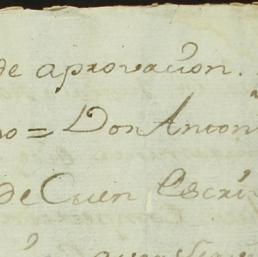 de aprovacion.
no = Don Anton
de Cuen Escri